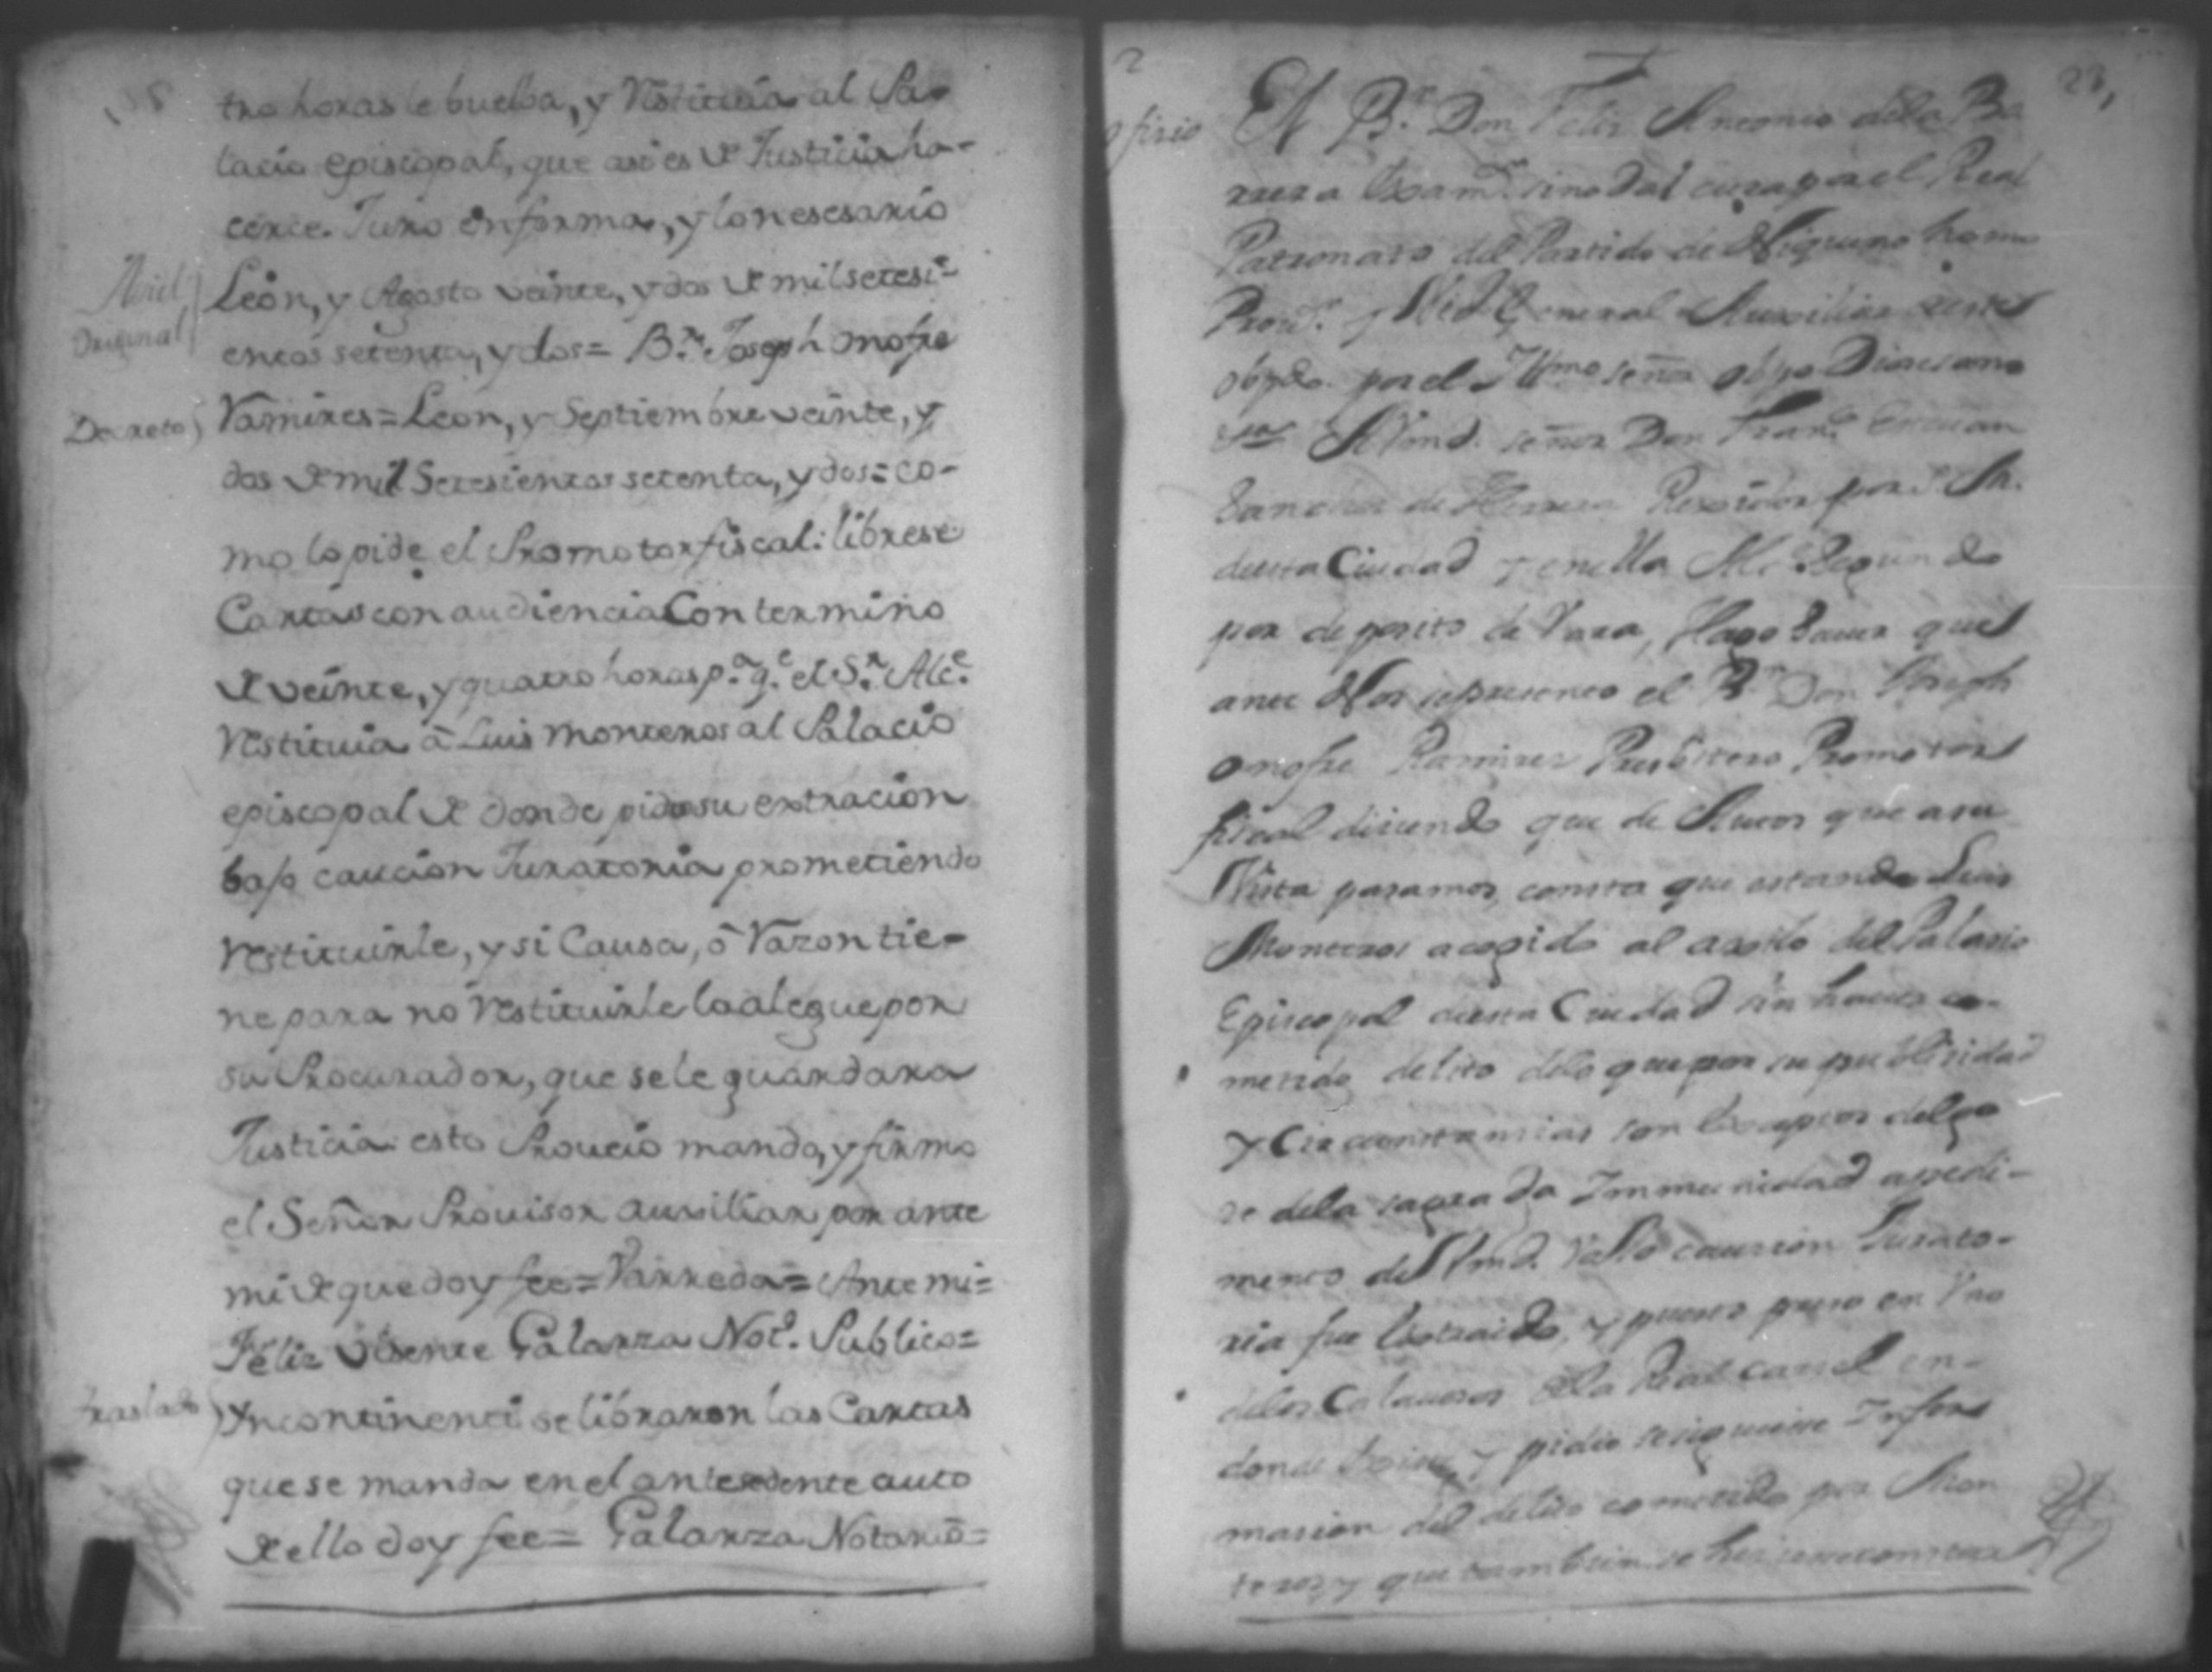 tro horas le buelba, y restituia al Pa-
lacio episcopal, que asi es de Justicia ha-
cerce. Juro en forma, y lo nesesario
León, y Agosto veinte, y dos de mil setesi-
Original
entos setenta, y dos = B.r Joseph onofre
Decreto) Ramires = Leon, y Septiembre veinte, y
dos de mil Setesientos setenta, y dos = co-
mo lo pide el Promotor fiscal: librese
Cartas con audiencia Con termino
de veinte, y quatro horas p.a q.e el S.r Alc.e
restituia â Luis Monteros al Palacio
episcopal de donde pidio su extracion
bajo caución Juratoria prometiendo
restituirle, y si Causa, ô Razon tie-
ne para no restituirle la alegue por
su Procurador, que se le guardara
Justicia: esto Proueió mando, y firmo
el Señor Prouisor auxiliar por ante
mi de que doy fee = Varreda = Ante mi =
Féliz Visente Galarza Not.o Publico =
traslado) Yncontinenti se libraron las Cartas
que se manda en el antesedente auto
de ello doy fee = Galarza Notario =
2
23,
ofisio El B.r Don Felis Antonio dela Ba
rrera Exam.r sinodal cura por el Real
Patronato del Partido de
Prov.r y Vic.o General Auxiliar deste
obpdo. por el Yllmo señor obpo Diocesano
A Vmd. señor Don Fran.co
Sanches de Herrera Rexidor por S. M.
desta Ciudad y en ella Alc.e Segundo
por deposito de Vara, Hago Saver que
ante Nos se presento el B.r Don Joseph
onofre Ramires Presbitero Promotor
fiscal diciendo que de Autos que a su
Vista pasamos, consta que estando Luis
Monteros acogido al asilo del Palasio
Episcopal desta Ciudad sin haver co-
metido delito delo que por su publisidad
y Circunstancias son Exceptos del go
se dela sagrada Immunidad a pedi-
mento de Vmd. Vajo caucion Jurato-
ria fue Extraido, y puesto preso en Vno
delos Calavosos dela Real carsel en
donde Existe, y pidio se siguiese Infor
masion del delito cometido por Mon
teros, y que tambien se hisiese constar